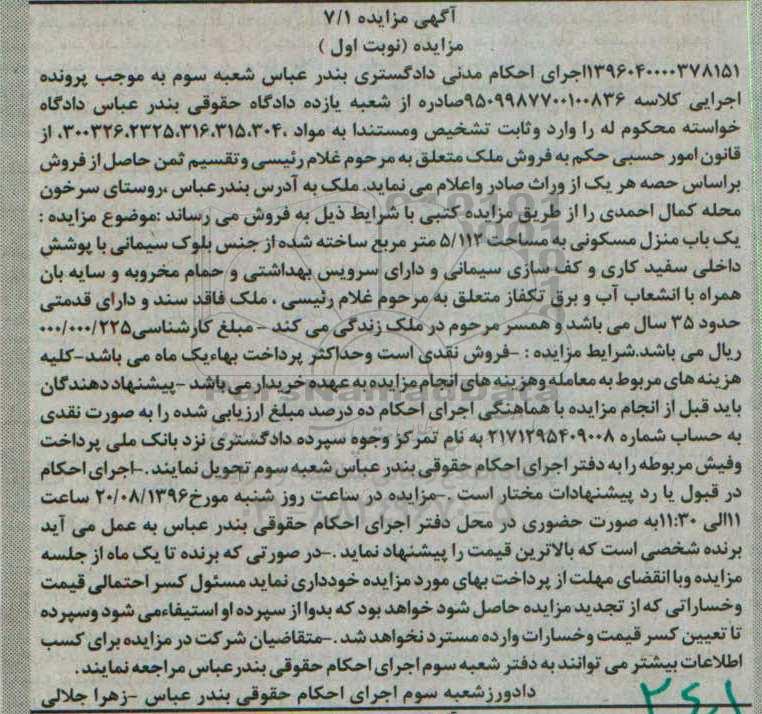 آگهی مزایده ۷/۱
مزایده (نوبت اول )
۱۳۹۶۰۴۰۰۰۰۳۷۸۱۵۱اجرای احکام مدنی دادگستری بندر عباس شعبه سوم به موجب پرونده
اجرایی کلاسه ۹۵۰۹۹۸۷۷۰۰۱۰۰۸۳۶صادره از شعبه یازده دادگاه حقوقی بندر عباس دادگاه
خواسته محکوم له را وارد وثابت تشخیص ومستندا به مواد ،۳۰۰۳۲۶،۲۳۲۵،۳۱۶،۳۱۵،۳۰۴، از
قانون امور حسبی حکم به فروش ملک متعلق به مرحوم غلام رئیسی وتقسیم ثمن حاصل از فروش
براساس حصه هر یک از وراث صادر واعلام می نماید. ملک به آدرس بندرعباس ،روستای سرخون
محله کمال احمدی را از طریق مزایده کتبی با شرایط ذیل به فروش می رساند :موضوع مزایده :
یک باب منزل مسکونی به مساحت ۵/۱۱۲ متر مربع ساخته شده از جنس بلوک سیمانی با پوشش
داخلی سفید کاری و کف سازی سیمانی و دارای سرویس بهداشتی و حمام مخروبه و سایه بان
همراه با انشعاب آب و برق تکفاز متعلق به مرحوم غلام رئیسی ، ملک فاقد سند و دارای قدمتی
حدود ۳۵ سال می باشد و همسر مرحوم در ملک زندگی می کند - مبلغ کارشناسی۰۰۰/۰۰۰/۲۲۵
ریال می باشد.شرایط مزایده : -فروش نقدی است وحداکثر پرداخت بهاءیک ماه می باشد-کلیه
هزینه های مربوط به معامله وهزینه های انجام مزایده به عهده خریدار می باشد -پیشنهاد دهندگان
باید قبل از انجام مزایده با هماهنگی اجرای احکام ده درصد مبلغ ارزیابی شده را به صورت نقدی
به حساب شماره ۲۱۷۱۲۹۵۴۰۹۰۰۸ به نام تمرکز وجوه سپرده دادگستری نزد بانک ملی پرداخت
وفیش مربوطه را به دفتر اجرای احکام حقوقی بندر عباس شعبه سوم تحویل نمایند .-اجرای احکام
در قبول یا رد پیشنهادات مختار است .-مزایده در ساعت روز شنبه مورخ۲۰/۰۸/۱۳۹۶ ساعت
۱۱الی ۱۱:۳۰به صورت حضوری در محل دفتر اجرای احکام حقوقی بندر عباس به عمل می آید
برنده شخصی است که بالاترین قیمت را پیشنهاد نماید .-در صورتی که برنده تا یک ماه از جلسه
مزایده وبا انقضای مهلت از پرداخت بهای مورد مزایده خودداری نماید مسئول کسر احتمالی قیمت
وخساراتی که از تجدید مزایده حاصل شود خواهد بود که بدوا از سپرده او استیفاءمی شود وسپرده
تا تعیین کسر قیمت وخسارات وارده مسترد نخواهد شد .-متقاضیان شرکت در مزایده برای کسب
اطلاعات بیشتر می توانند به دفتر شعبه سوم اجرای احکام حقوقی بندر عباس مراجعه نمایند .
دادورزشعبه سوم اجرای احکام حقوقی بندر عباس -زهرا جلالی
ParsNamadData